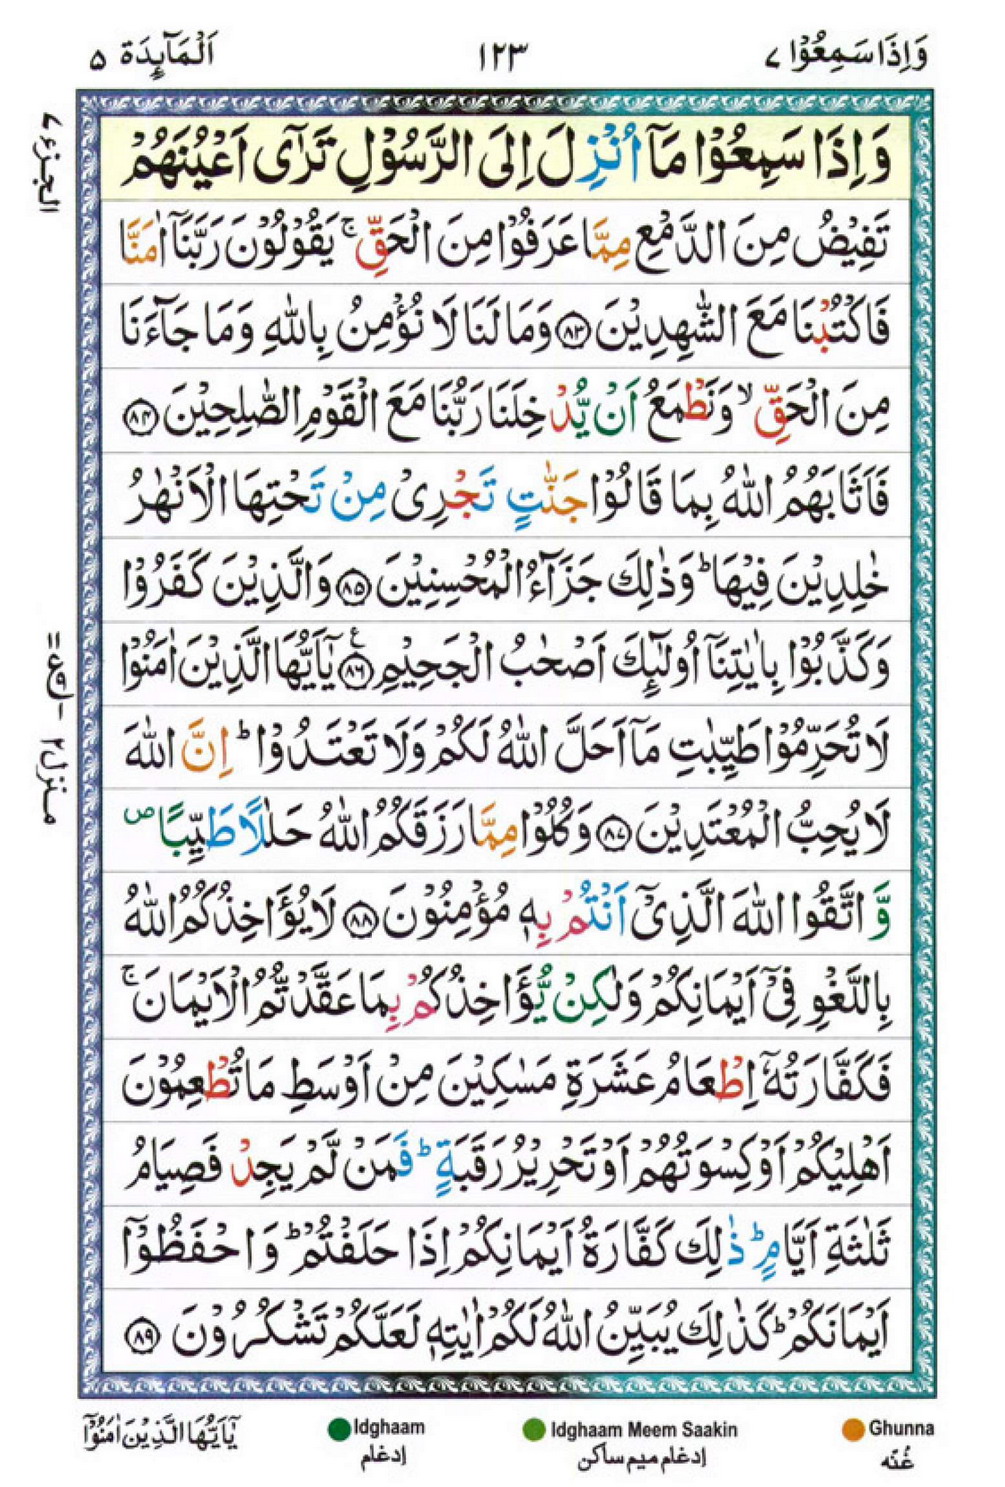 وَاِذَا سَمِعُوْا ٧ ١٢٣ اَلْمَآئِدَة ٥
الجزء ٧
وَاِذَا سَمِعُوْا مَآ اُنْزِلَ اِلَى الرَّسُوْلِ تَرٰٓى اَعْيُنَهُمْ
تَفِيْضُ مِنَ الدَّمْعِ مِمَّا عَرَفُوْا مِنَ الْحَقِّ ۚ يَقُوْلُوْنَ رَبَّنَآ اٰمَنَّا
فَاكْتُبْنَا مَعَ الشّٰهِدِيْنَ ﴿٨٣﴾ وَمَا لَنَا لَا نُؤْمِنُ بِاللّٰهِ وَمَا جَآءَنَا
مِنَ الْحَقِّ ۙ وَنَطْمَعُ اَنْ يُّدْخِلَنَا رَبُّنَا مَعَ الْقَوْمِ الصّٰلِحِيْنَ ﴿٨٤﴾
فَاَثَابَهُمُ اللّٰهُ بِمَا قَالُوْا جَنّٰتٍ تَجْرِيْ مِنْ تَحْتِهَا الْاَنْهٰرُ
خٰلِدِيْنَ فِيْهَا ؕ وَذٰلِكَ جَزَآءُ الْمُحْسِنِيْنَ ﴿٨٥﴾ وَالَّذِيْنَ كَفَرُوْا
وَكَذَّبُوْا بِاٰيٰتِنَآ اُولٰٓئِكَ اَصْحٰبُ الْجَحِيْمِ ﴿٨٦﴾ ع يٰٓاَيُّهَا الَّذِيْنَ اٰمَنُوْا
لَا تُحَرِّمُوْا طَيِّبٰتِ مَآ اَحَلَّ اللّٰهُ لَكُمْ وَلَا تَعْتَدُوْا ؕ اِنَّ اللّٰهَ
لَا يُحِبُّ الْمُعْتَدِيْنَ ﴿٨٧﴾ وَكُلُوْا مِمَّا رَزَقَكُمُ اللّٰهُ حَلٰلًا طَيِّبًا ۪
وَّاتَّقُوا اللّٰهَ الَّذِيْٓ اَنْتُمْ بِهٖ مُؤْمِنُوْنَ ﴿٨٨﴾ لَا يُؤَاخِذُكُمُ اللّٰهُ
بِاللَّغْوِ فِيْٓ اَيْمَانِكُمْ وَلٰكِنْ يُّؤَاخِذُكُمْ بِمَا عَقَّدْتُّمُ الْاَيْمَانَ ۚ
فَكَفَّارَتُهٗٓ اِطْعَامُ عَشَرَةِ مَسٰكِيْنَ مِنْ اَوْسَطِ مَا تُطْعِمُوْنَ
اَهْلِيْكُمْ اَوْ كِسْوَتُهُمْ اَوْ تَحْرِيْرُ رَقَبَةٍ ؕ فَمَنْ لَّمْ يَجِدْ فَصِيَامُ
ثَلٰثَةِ اَيَّامٍ ؕ ذٰلِكَ كَفَّارَةُ اَيْمَانِكُمْ اِذَا حَلَفْتُمْ ؕ وَاحْفَظُوْٓا
اَيْمَانَكُمْ ؕ كَذٰلِكَ يُبَيِّنُ اللّٰهُ لَكُمْ اٰيٰتِهٖ لَعَلَّكُمْ تَشْكُرُوْنَ ﴿٨٩﴾
منزل ٢
يٰٓاَيُّهَا الَّذِيْنَ اٰمَنُوْٓا
Idghaam Idghaam Meem Saakin Ghunna
إدغام إدغام ميم ساكن غُنّه